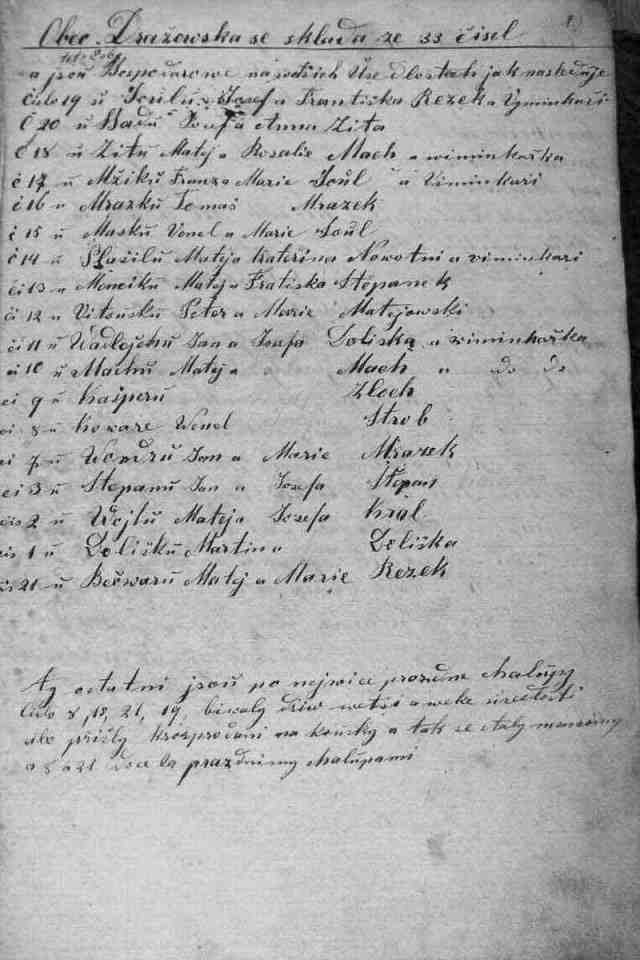 1)
Obec. Dražowska se sklada ze 33 čisel
a jsou Hospodarowe na sodšich Usedlostach jak nasleduje
Čislo 19 u Joulů Josef a Františka Rezek a Vyminkaři
Č 20 u Hadů Josef a Anna Zita
Č 18 u Zitů Matej a Rosalie Mach a wiminkařka
č 17 u Mžiků Franz a Marie Joůl a Viminkari
č 16 u Mrazků Tomaš Mrazek
č 15 u Masků Venel a Marie Joůl
č 14 u Složilů Mateja Kateřina Nowotni a viminkari
či 13 u Menciků Matej a Fratiska Stěpanek
či 12 u Vitousků Peter a Marie Matejowski
či 11 u Wadlejchů Jan a Josefa Doliska a wiminkařka
či 10 u Machů Matej a Mach a do do
ci 9 u Kašperů Zloch
ci 8 u Koware Wenel Strob
ci 7 u Wondrů Jan a Marie Mrazek
ci 3 u Stepanů Jan a Josefa Štepan
čis 2 u Wojtů Mateja Josefa Kral
čis 1 u Doližků Martina Doližka
čis 21 u Bečwarů Matej a Marie Rezek
Ty ostatni jsou po nejwice prazdne chalupy
Čislo 8, 18, 21, 19, biwaly dřiw a weke
ale přišly krosprodani na kousky a tak se staly
a 8 a 21 prazdnimy chalupami